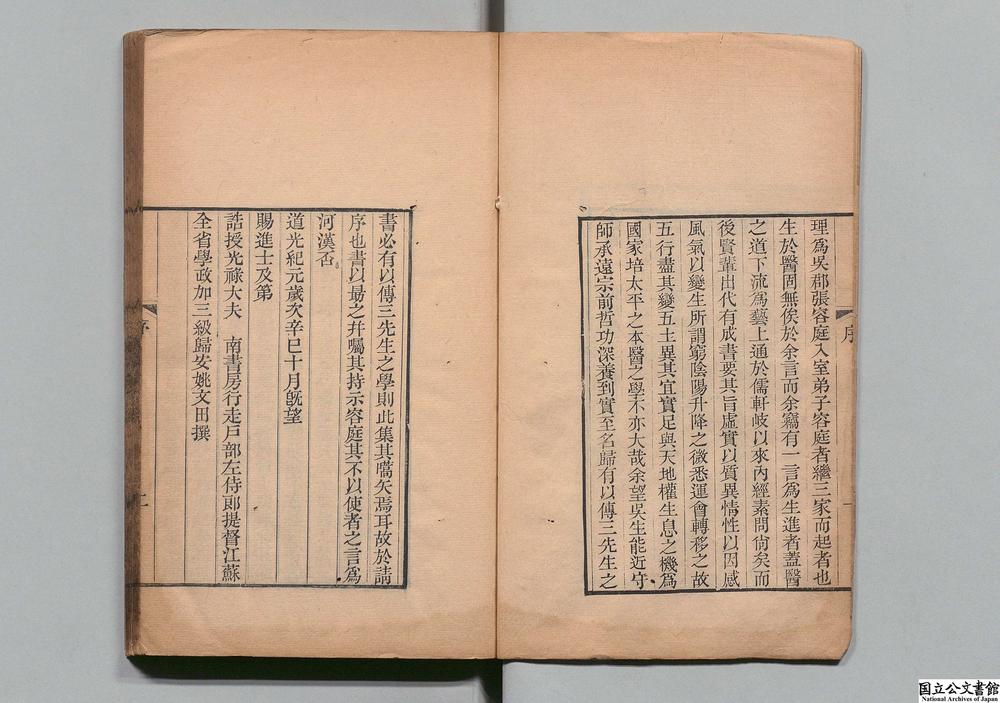 理爲吳郡張容庭入室弟子容庭者繼三家而起者也
生於醫固無俟於余言而余竊有一言爲生進者蓋醫
之道下流爲藝上通於儒軒岐以來內經素問尙矣而
後賢輩出代有成書要其旨虛實以質異情性以因感
風氣以變生所謂窮陰陽升降之微悉運會轉移之故
五行盡其變五土異其宜實足與天地權生息之機爲
國家培太平之本醫之學不亦大哉余望吳生能近守
師承遠宗前哲功深養到實至名歸有以傳三先生之
序
一
書必有以傳三先生之學則此集其嚆矢焉耳故於請
序也書以勗之幷囑其持示容庭其不以使者之言爲
河漢否
道光紀元歲次辛巳十月旣望
賜進士及第
誥授光祿大夫　南書房行走戶部左侍郎提督江蘇
全省學政加三級歸安姚文田撰
序
二
国立公文書館
National Archives of Japan